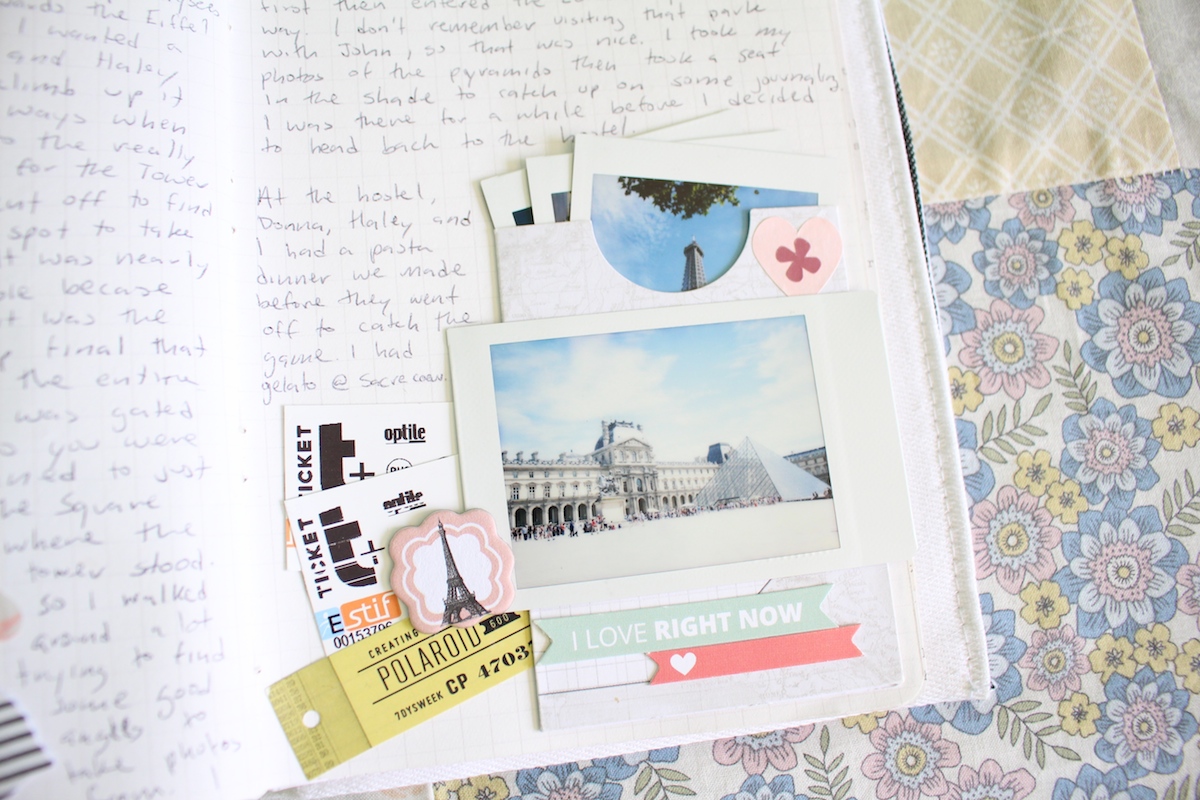 ards the Eiffel
I wanted a
and Haley
climb up it
ways when
the really
for the Tower
off to find
spot to take
it was nearly
becase
it was the
final that
the entire
was gated
so you were
to just
the Square
where the
tower stood.
so I walked
around a lot
trying to find
some good
angles to
take photos
from. I
first then entered the
way. I don't remember visiting that park
with John, so that was nice. I took my
photos of the pyramids then took a seat
in the shade to catch up on some journaling.
I was there for a while before I decided
to head back to the hostel
At the hostel,
Donna, Haley and
I had a pasta
dinner we made
before they went
off to catch the
game. I had
gelato @ Sacre coeur.
TICKET
t+
optile
TICKET
t+
optile
E stif
00153796
CREATING
POLAROID
600
7DYSWEEK CP 4703
I LOVE RIGHT NOW